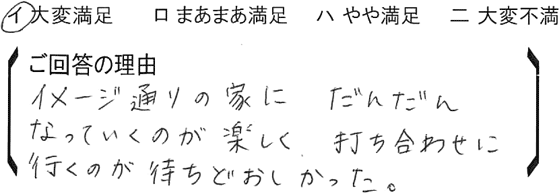 イ 大変満足　ロ まあまあ満足　ハ やや満足　ニ 大変不満
ご回答の理由
イメージ通りの家に だんだん
なっていくのが楽しく 打ち合わせに
行くのが待ちどおしかった。